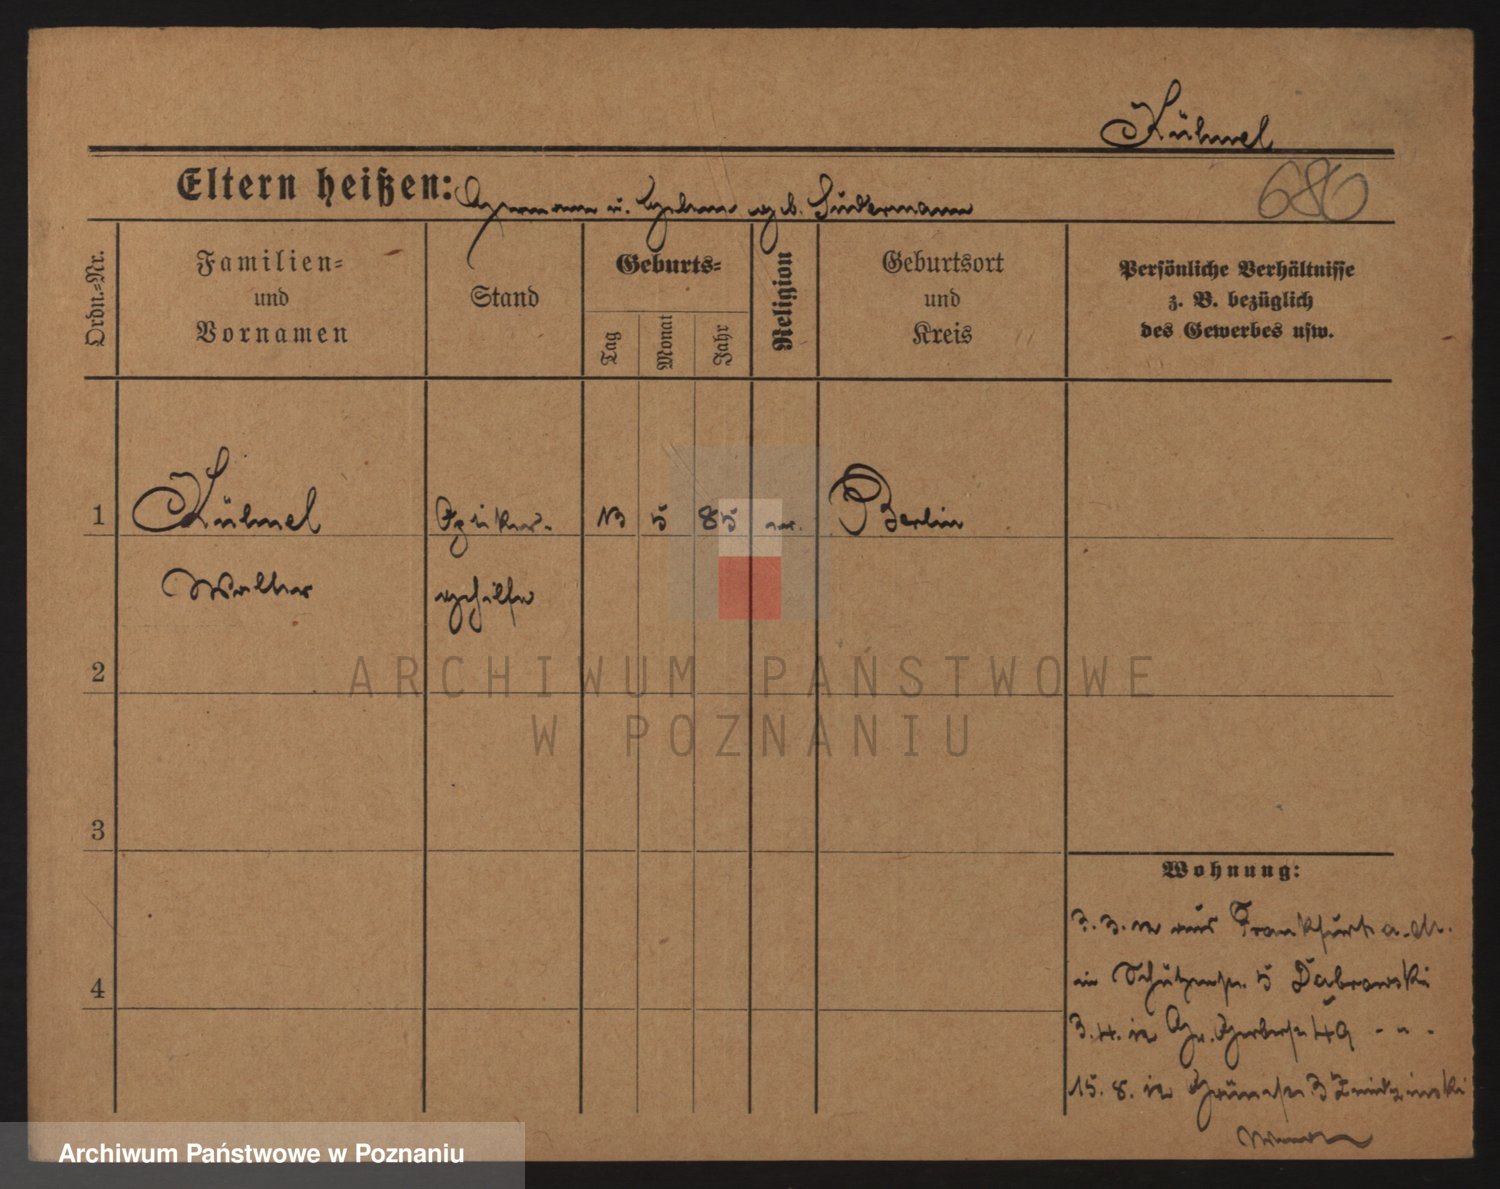 Kühnel
Eltern heißen: Hermann u. Helene geb. Sudermann
680
Ordn.-Nr.
Familien-
und
Vornamen
Stand
Geburts-
Tag
Monat
Jahr
Religion
Geburtsort
und
Kreis
Persönliche Verhältnisse
z. B. bezüglich
des Gewerbes usw.
1 Kühnel Optiker- 13 5 85 ev. Berlin
Walter gehilfe
2
ARCHIWUM PAŃSTWOWE
W POZNANIU
3
Wohnung:
3. 3. 12 aus Frankfurt a. M.
in Schützenstr. 5 Dabrowski
4
3. 4. 12 Gr. Gerberstr 49 - " -
15. 8. 12 Grünestr. 3
Archiwum Państwowe w Poznaniu